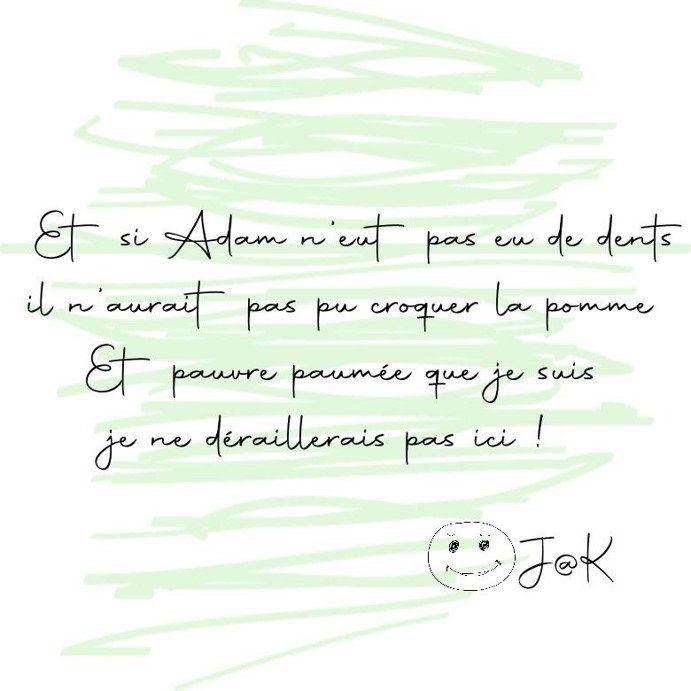 Et si Adam n'eut pas eu de dents
il n'aurait pas pu croquer la pomme
Et pauvre paumée que je suis
je ne déraillerais pas ici !
J@K